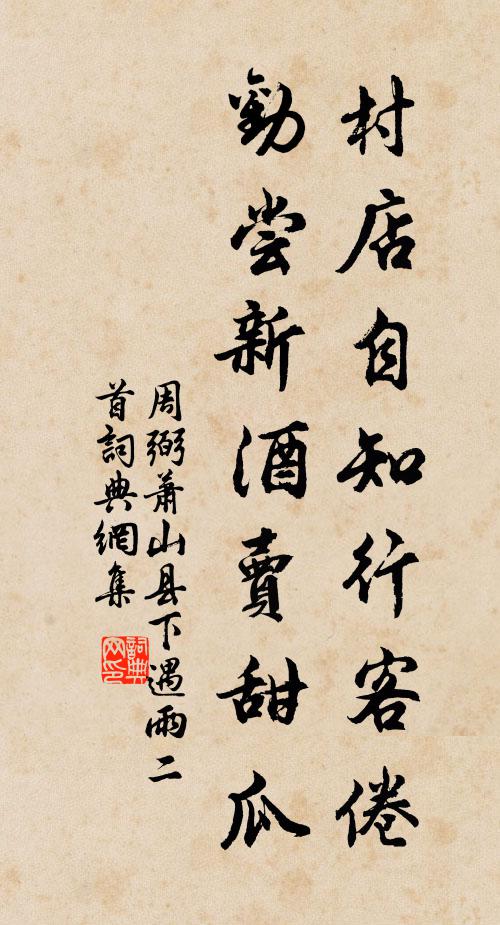 村店自知行客倦
勸尝新酒賣甜瓜
周弼萧山县下遇雨二
首詞典網集
詞典网印